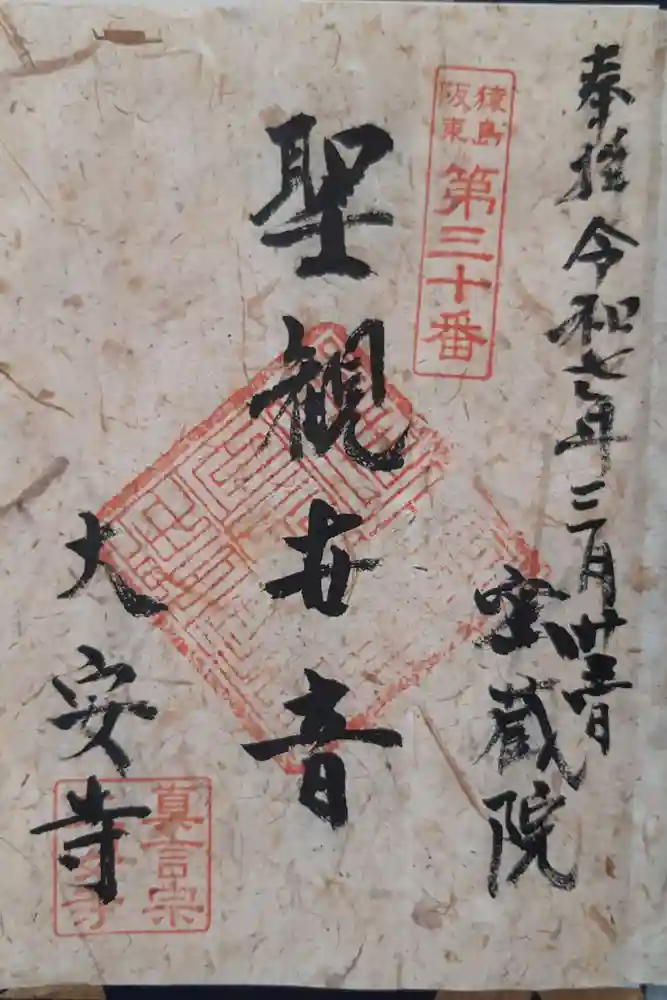 奉拝 令和七年三月廿三日
猿島
阪東
第三十番
宝蔵院
聖観世音
大安寺
真言宗
大安寺